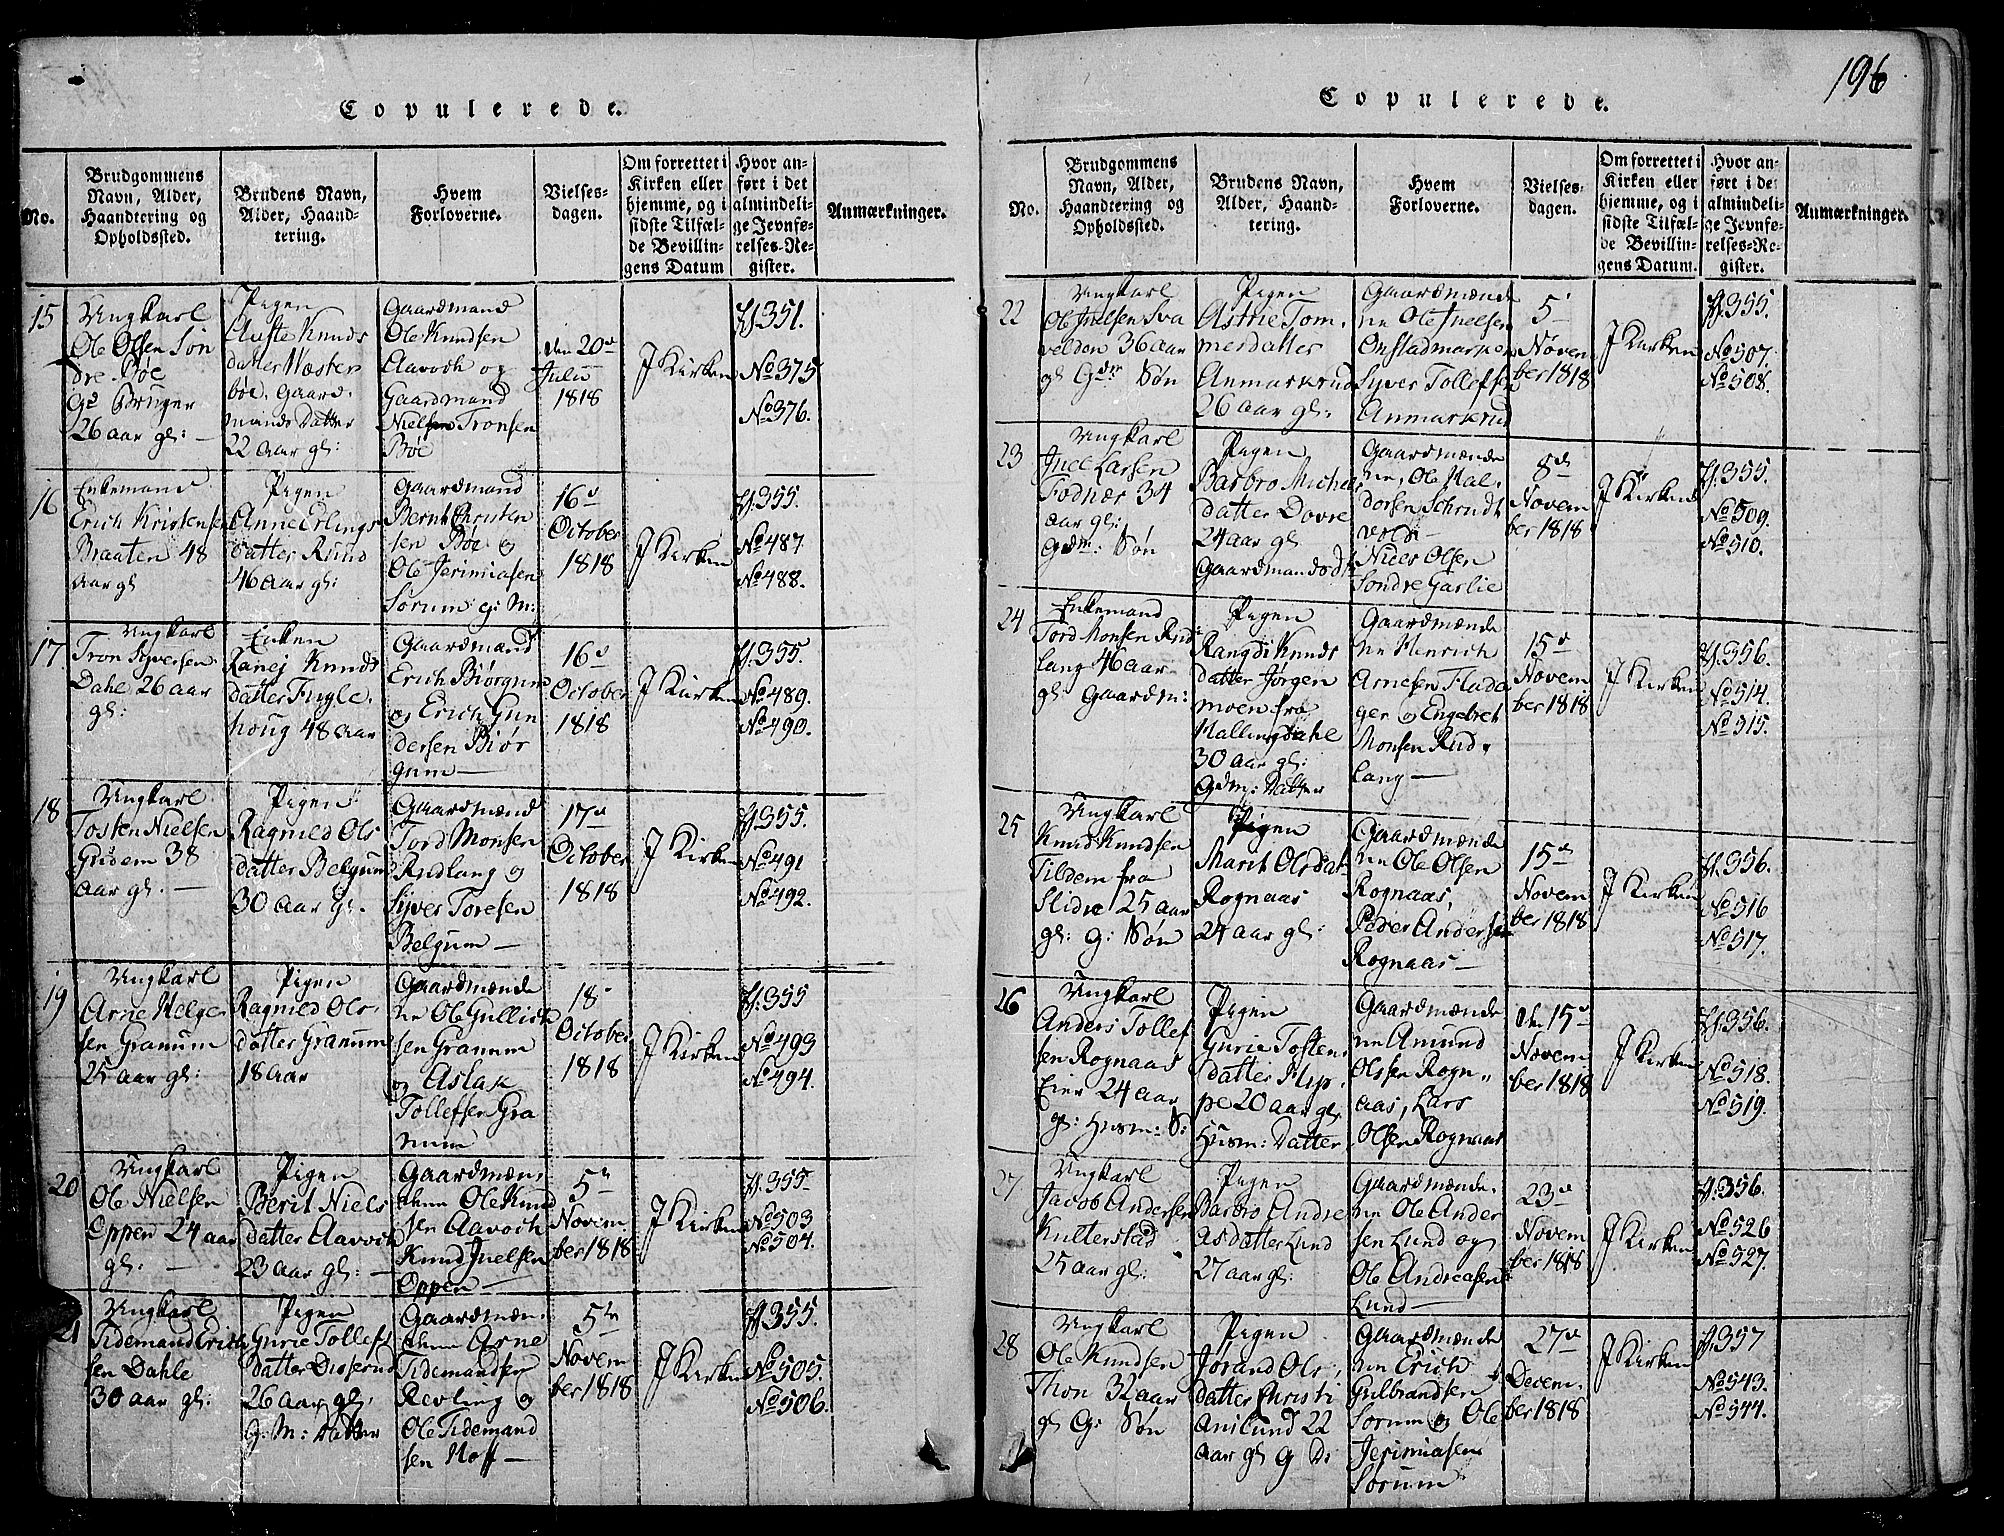 Copulerede.
No.
Brudgommens
Navn, Alder,
Haandtering og
Opholdssted.
Brudens Navn,
Alder, Haand-
tering.
Hvem
Forloverne.
Vielses-
dagen.
Om forrettet i
Kirken eller
hjemme, og i
sidste Tilfæl-
de Bevillin-
gens Datum
Hvor an-
ført i det
almindeli-
ge Jevnfø-
relses-Re-
gister.
Anmærkninger.
15
Ungkarl
Ole Olsen Søn
dre Bøe
Gd Bruger
26 aar gl: —
Pigen
Knuds
datter Wæster
bøe, Gaard-
mands Datter
22 aar gl:
Gaardmand
Ole Knudsen
Aavoth og
Gaardmand
Nielsen Tronsen
Bøe
den 20de
Julii
1818
J Kirken
fl. 351.
No 375
No 376.
16
Enkemand
Erich Kristensen
Braaten 48
aar gl
Pigen
Anne Erlings
datter Rund
46 aar gl:
Gaardmand
Bernt Christen
sen Bøe og
Ole Jerimiasen
Sorum g: M:
16d
October
1818
J Kirken
fl. 355.
No 487.
No 488.
17
Ungkarl
Tron Syversen
Dahl 26 aar
gl:
Enken
Ranej Knuds
datter Fugle
houg 48 aar
Gaardmand
Erich Biørgum
og Erich Gun
dersen Biør
gum —
16d
October
1818
J Kirken
fl. 355.
No 489.
No 490.
18
Ungkarl
Tosten Nielsen
Gridem 38
aar gl. —
Pigen
Ragnild Ols
datter Belgum
30 aar gl.
Gaardmænd
Tord Monsen
Rudlang og
Syver Toresen
Belgum —
17d
October
1818
J Kirken
fl. 355.
No 491
No 492.
19
Ungkarl
Arne Helge
sen Granum
25 aar gl:
Pigen
Ragnild Ols
datter Granum
18 aar
Gaardmænde
ne Ole Gullich
sen Granum
og Aslak
Tollefsen Gra
num
18
October
1818
J Kirken
fl: 355
No 493
No 494.
20
Ungkarl
Ole Nielsen
Oppen 24 aar
gl: —
Pigen
Berit Niels
datter Aavoth
23 aar gl: —
Gaardmæn
dene Ole Knud
sen Aavoth
Knud Juelsen
Oppen —
5te
Novem
ber 1818
J Kirken
fl. 355
No 503
No 504.
21
Ungkarl
Tidemand Erich
sen Dahle
30 aar gl:
Pigen
Gurie Tollefs
datter
26 aar gl.
G: M: datter
Gaardmæn
dene Arne
Tidemandsen
Revling og
Ole Tidemand
sen Hoff —
5te
Novem
ber 1818
J Kirken
fl. 355.
No 505.
No 506.
196
Copulerede.
No.
Brudgommens
Navn, Alder,
Haandtering og
Opholdssted.
Brudens Navn,
Alder, Haand-
tering.
Hvem
Forloverne.
Vielses-
dagen.
Om forrettet i
Kirken eller
hjemme, og i
sidste Tilfæl-
de Bevillin-
gens Datum.
Hvor an-
ført i det
almindeli-
ge Jevnfø-
relses-Re-
gister.
Anmærkninger.
22
Ungkarl
Ole Juelsen Sva
36 aar
gl Gdm Søn
Pigen
Astrie Tom
mesdatter
Anmarkrud
26 aar gl:
Gaardmænde
ne Ole Juelsen
Onstadmarken
Syver Tollefsen
Anmarkrud
5
Novem
ber 1818
J Kirken
fl. 355.
No 507.
No 508.
23
Ungkarl
Juel Larsen
Fodnæs 34
aar gl:
Gdm: Søn
Pigen
Barbro Michels
datter Dovre
24 aar gl
Gaardmandsdt
Gaardmænde
ne, Ole Hal
dorsen Schrudt
vold
Niels Olsen
Søndre Garlie
8de
Novem
ber 1818
J Kirken
fl. 355.
No 509.
No 510.
24
Enkemand
Tord Monsen Rud
lang 46 aar
gl Gaardm:
Pigen
Rangdi Knuds
datter Jørgen
moen fra
Hallingdahl
30 aar gl:
Gdm: Datter
Gaardmænde
ne Henrich
Arnesen Flada
ger og Engebret
Monsen Rud
lang —
15d
Novem
ber 1818
J Kirken
fl. 356.
No 514.
No 515.
25
Ungkarl
Knud Knudsen
Tildem fra
Slidre 25 aar
gl: g: Søn
Pigen
Marit Olsdat
Rognaas
24 aar gl:
Gaardmænde
ne Ole Olsen
Rognaas,
Peder Andersen
Rognaas —
15de
Novem
ber 1818
J Kirken
fl. 356.
No 516
No 517.
26
Ungkarl
Anders Tollef
sen Rognaas
Eier 24 aar
gl: Husm: S:
Pigen
Gurie Tostens
datter Hip
pe 20 aar gl
Husm: Datter
Gaardmænde
ne Amund
Olsen Rogn
aas, Lars
Olsen Rognaas
den 15d
Novem
ber 1818
J Kirken
fl. 356.
No 518.
No 519.
27
Ungkarl
Jacob Andersen
Kulterstad
25 aar gl:
Pigen
Barbro Andre
asdatter Lund
27 aar gl:
Gaardmænde
ne Ole Ander
sen Lund og
Ole Andreasen
Lund —
23d
Novem
ber 1818
J Kirken
fl. 356.
No 526
No 527.
28
Ungkarl
Ole Knudsen
Thon 32 aar
gl G: Søn
Pigen
Jørand Ols
datter Christi
anslund 22
aar gl G D:
Gaardmænde
ne Erich
Gulbrandsen
Sorum og Ole
Jerimiasen
Sorum
27d
Decem
ber 1818
J Kirken
fl. 357
No 543.
No 544.